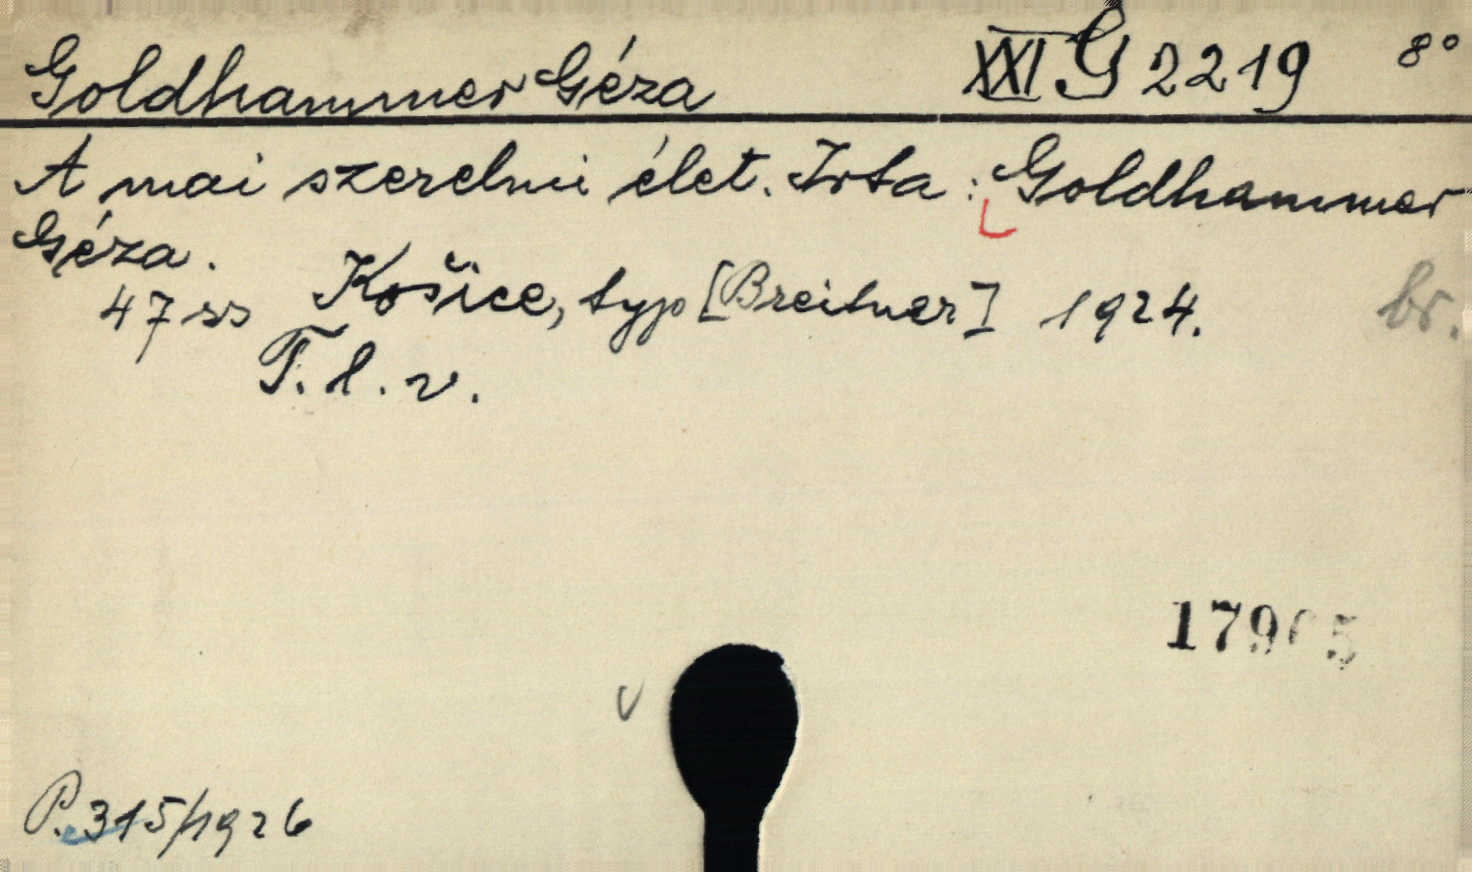 Goldhammer Géza XXI G 2219 8°
A mai szerelmi élet. Irta: Goldhammer
Géza.
47 ss Košice, typ [Breitner] 1924. br.
T. l. v.
v
P. 315/1926